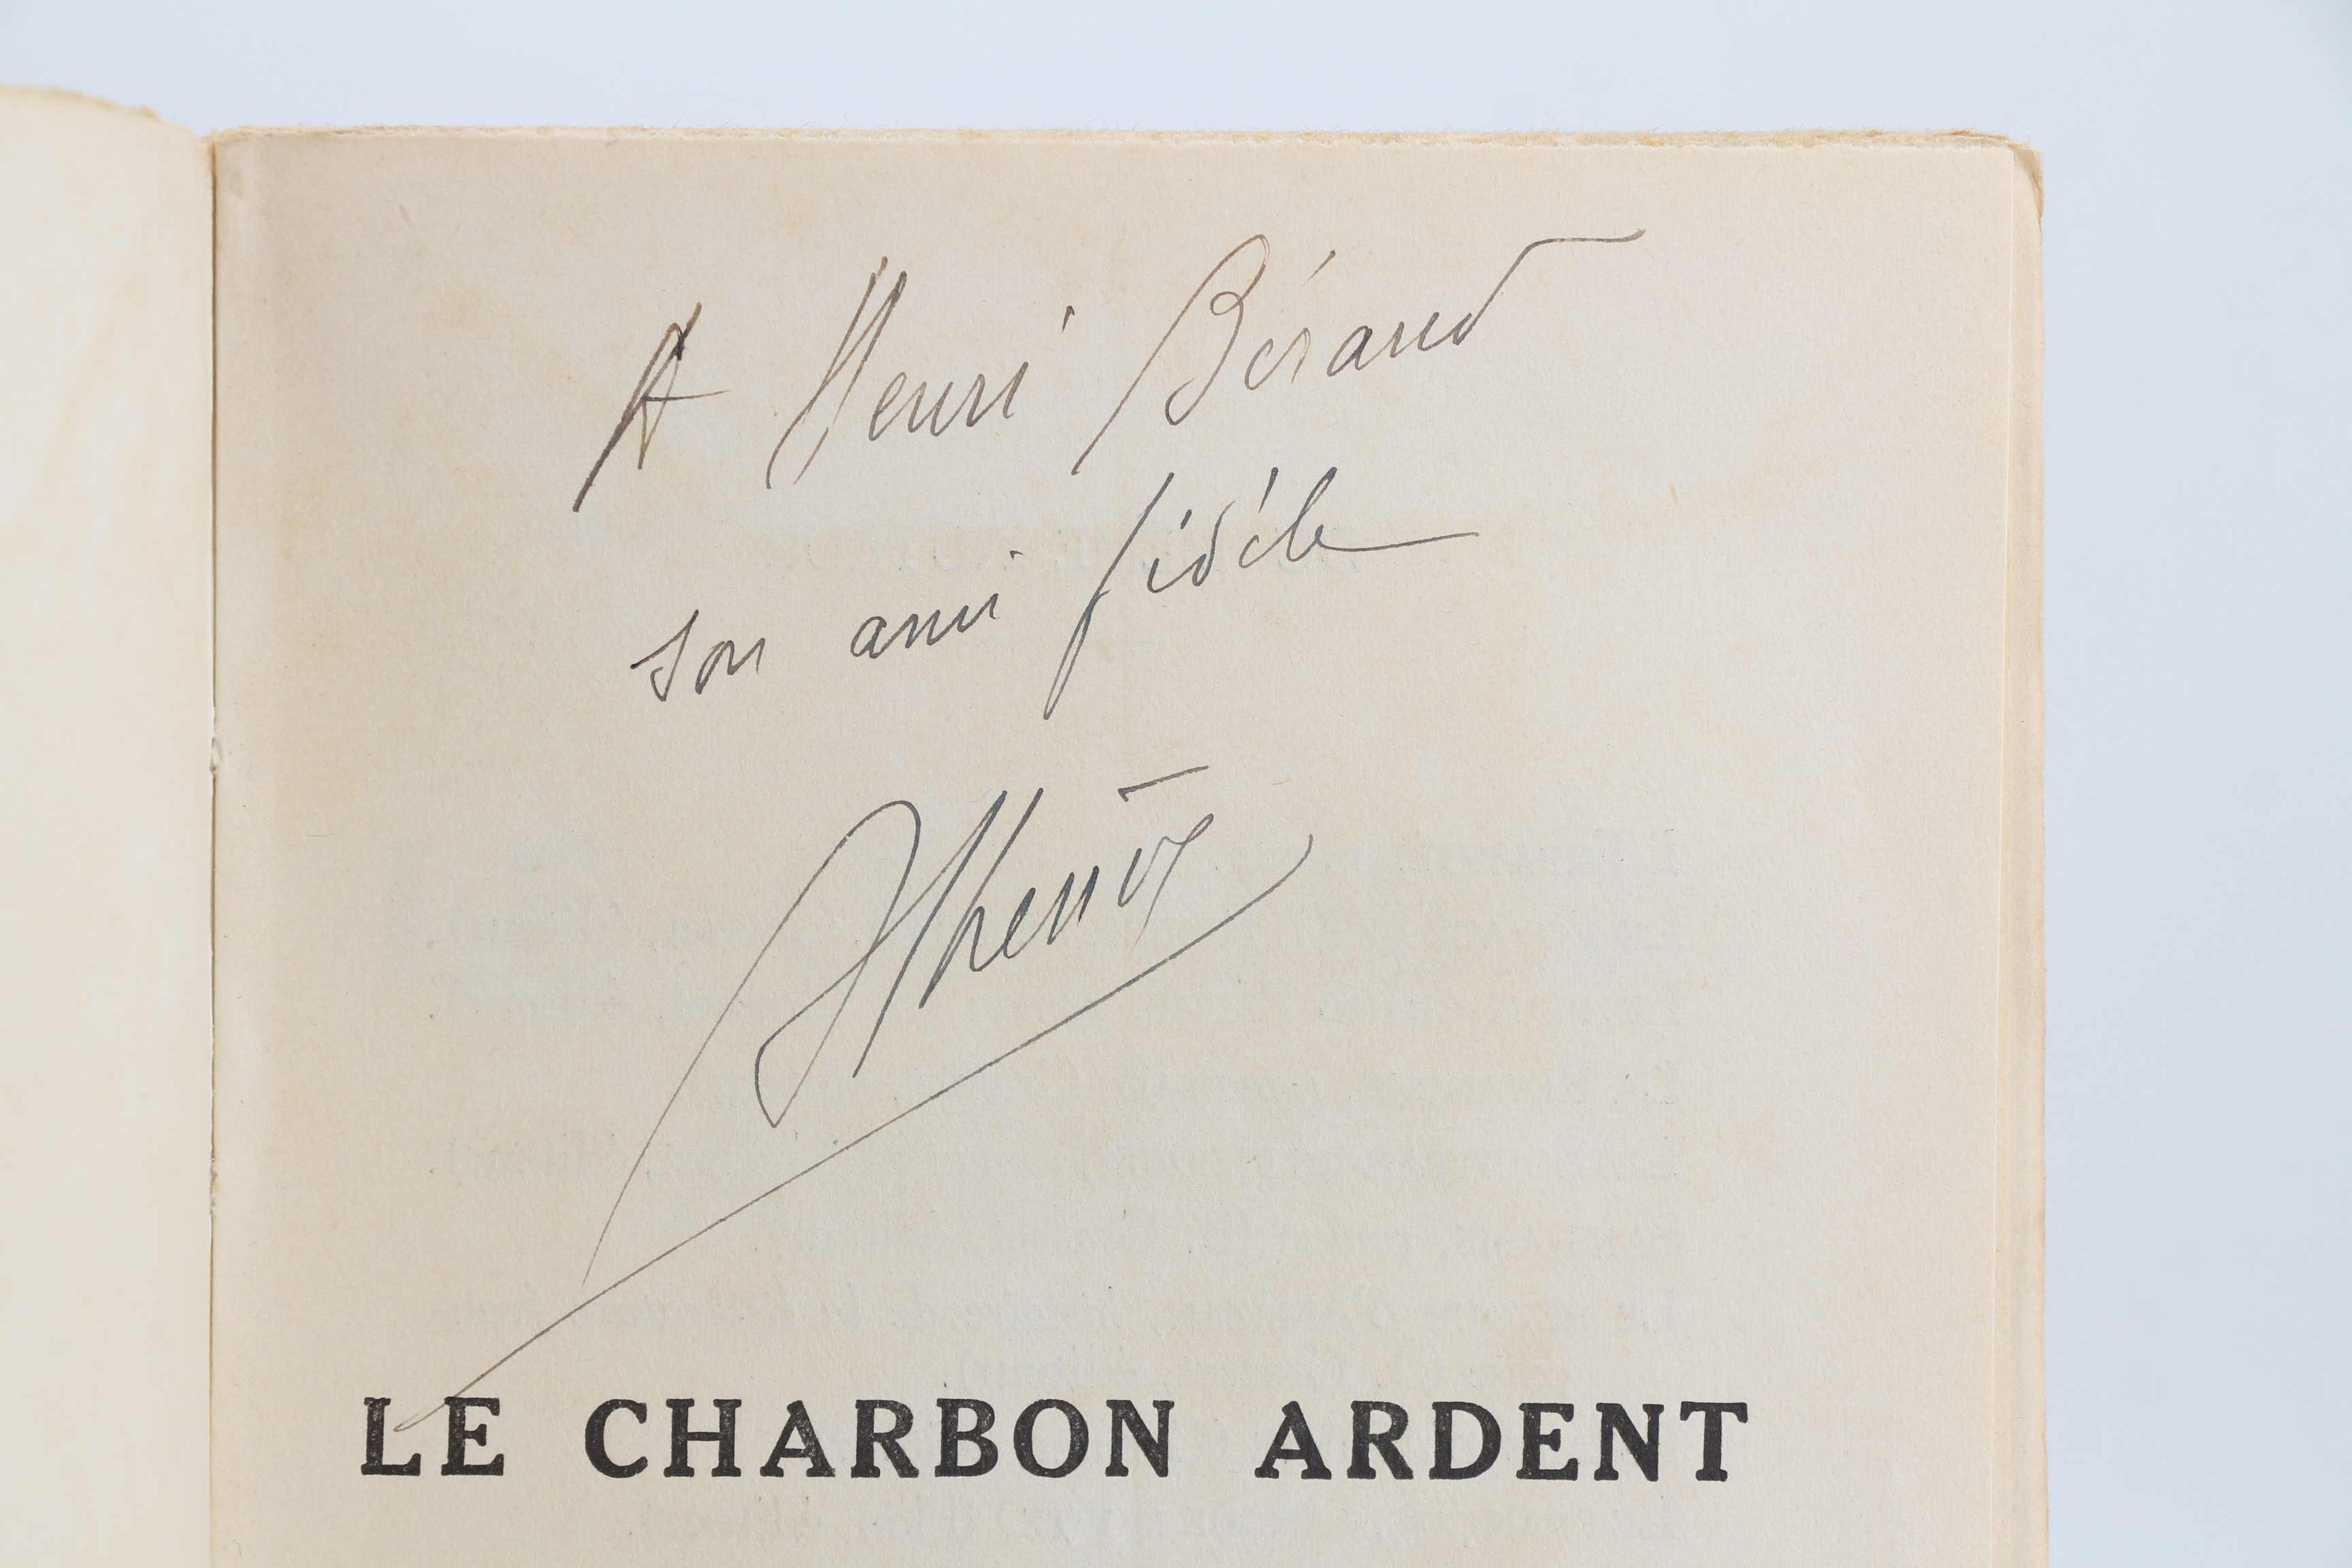 A Henri Béraud
son ami fidèle
AThérive
LE CHARBON ARDENT